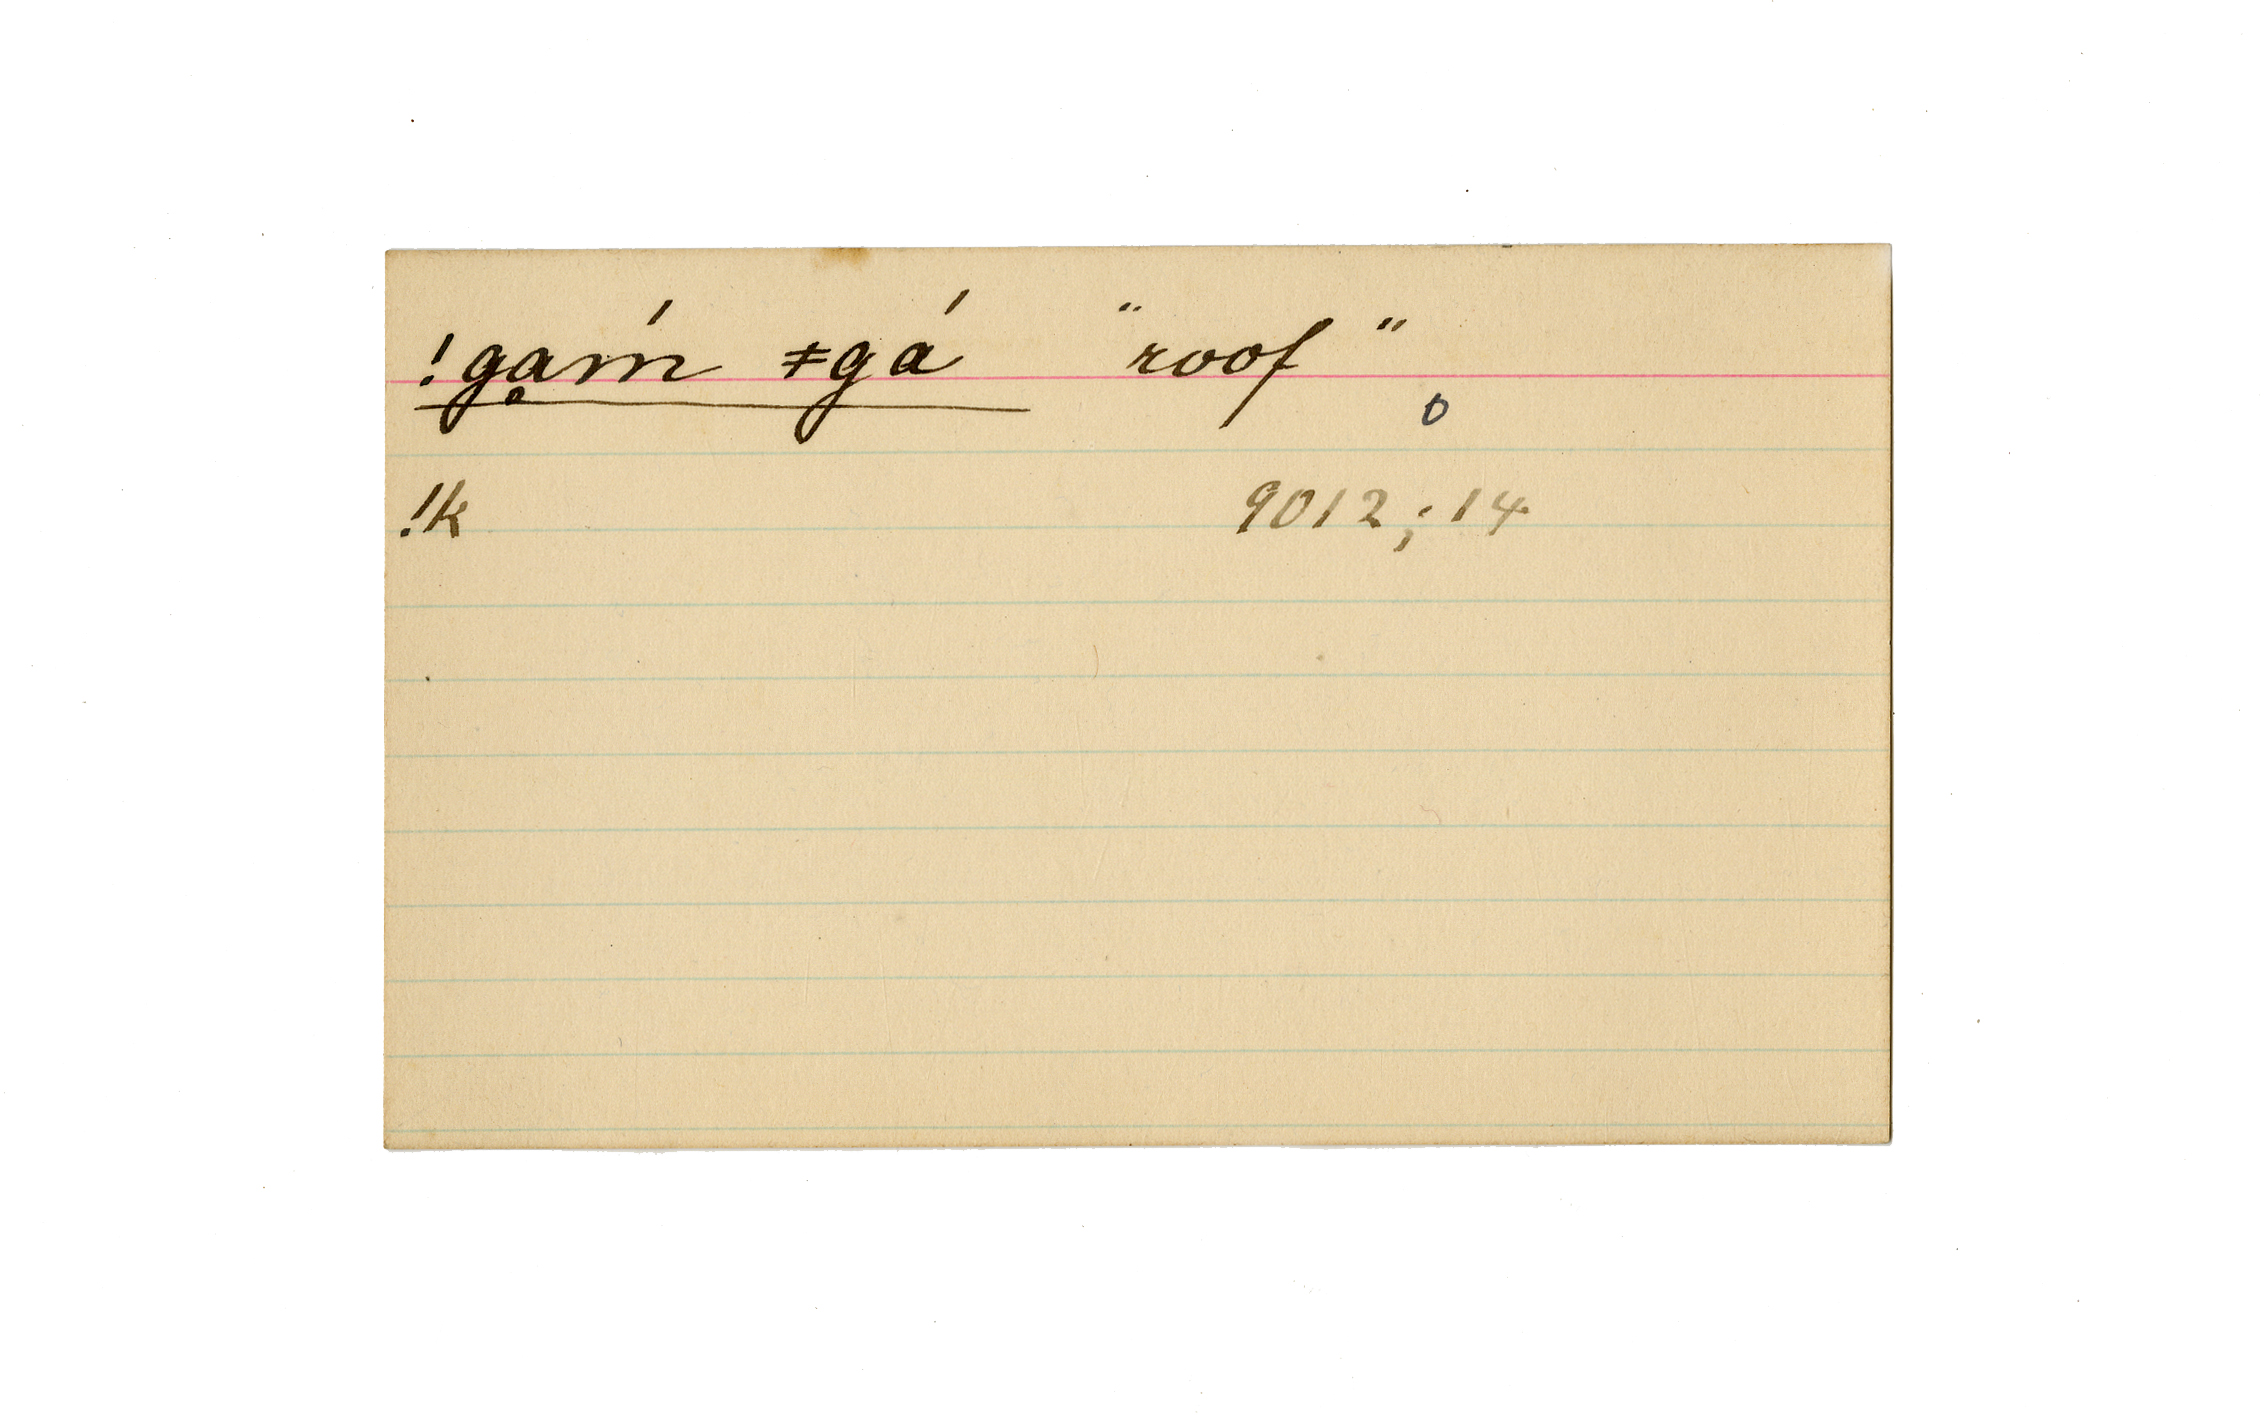 !gḁḿ ǂgá "roof"
o
!k 9012; 14